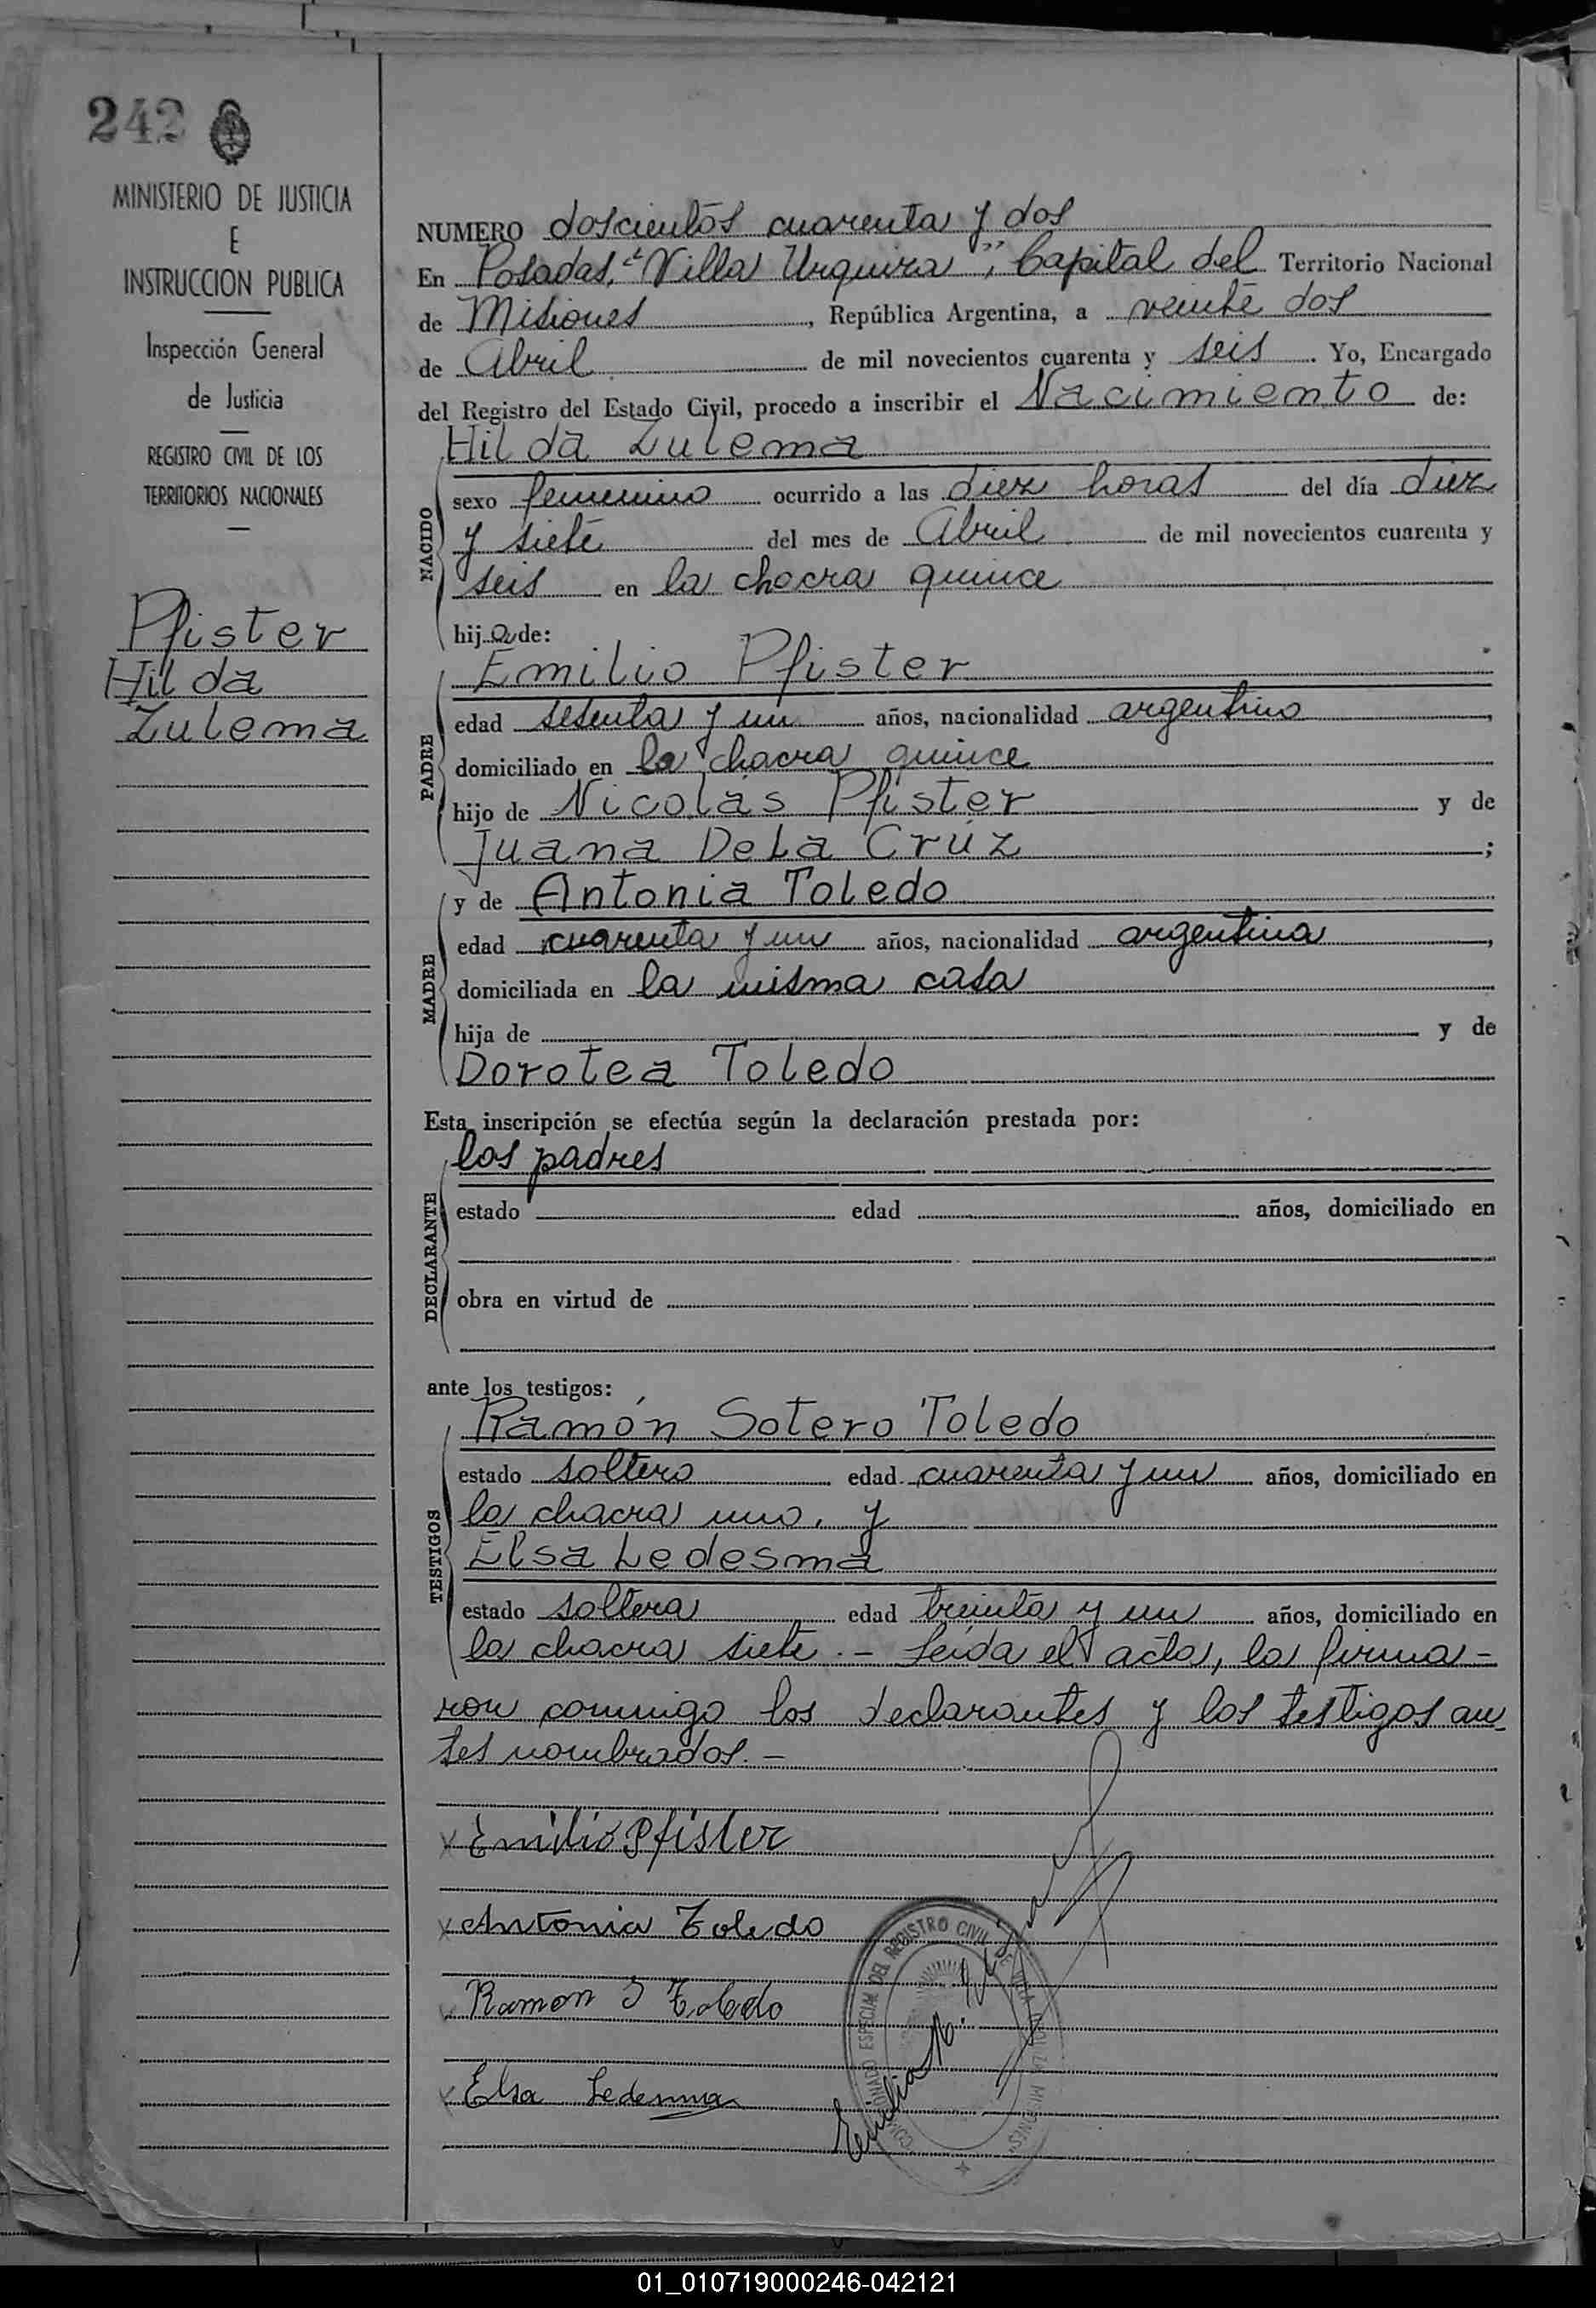 242
MINISTERIO DE JUSTICIA
E
INSTRUCCION PUBLICA
Inspección General
de Justicia
REGISTRO CIVIL DE LOS
TERRITORIOS NACIONALES
Pfister
Hilda
Zulema
NUMERO doscientos cuarenta y dos
En Posadas, "Villa Urquiza", Capital del Territorio Nacional
de Misiones, República Argentina, a veinte dos
de Abril de mil novecientos cuarenta y seis. Yo, Encargado
del Registro del Estado Civil, procedo a inscribir el Nacimiento de:
Hilda Zulema
NACIDO
sexo femenino ocurrido a las diez horas del día diez
y siete del mes de Abril de mil novecientos cuarenta y
seis en la chacra quince
hija de:
PADRE
Emilio Pfister
edad sesenta y un años, nacionalidad argentino,
domiciliado en la chacra quince
hijo de Nicolás Pfister y de
Juana De La Crúz;
MADRE
y de Antonia Toledo
edad cuarenta y un años, nacionalidad argentina,
domiciliada en la misma casa
hija de y de
Dorotea Toledo
Esta inscripción se efectúa según la declaración prestada por:
DECLARANTE
los padres
estado edad años, domiciliado en
obra en virtud de
ante los testigos:
TESTIGOS
Ramón Sotero Toledo
estado soltero edad cuarenta y un años, domiciliado en
la chacra uno, y
Elsa Ledesma
estado soltera edad treinta y un años, domiciliado en
la chacra siete.- Leída el acta, la firma-
ron conmigo los declarantes y los testigos an-
tes nombrados.-
x Emilio Pfister
x Antonia Toledo
x Ramon S Toledo
x Elsa Ledesma
REGISTRO CIVIL
01_010719000246-042121